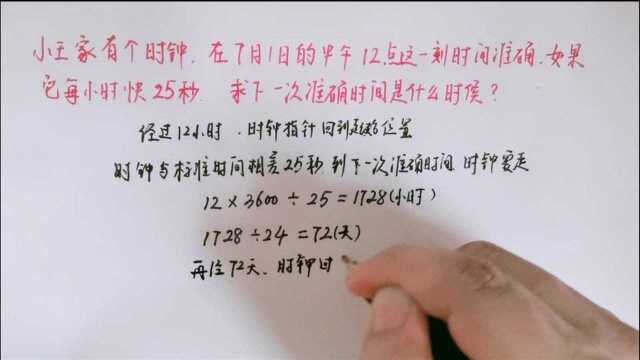 小王家有个时钟,在7月1日的中午12点这一刻时间准确.如果
它每小时快25秒.求下一次准确时间是什么时候?
经过12小时.时钟指针回到起始位置
时钟与标准时间相差25秒,到下一次准确时间,时钟要走
12×3600÷25=1728(小时)
1728÷24=72(天)
再经72天.时钟过